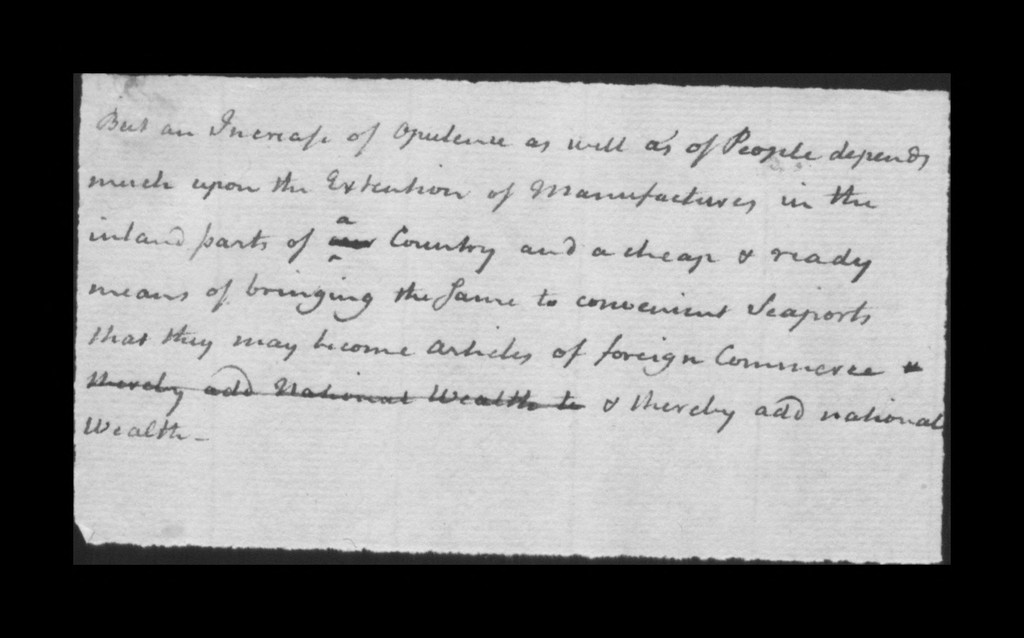 But an Increase of Opulence as well as of People depends
much upon the Extention of Manufactures in the
inland parts of a Country and a cheap & ready
means of bringing the Same to convenient Seaports
that they may become Articles of foreign Commerce &
thereby add National Wealth to & thereby add national
Wealth –